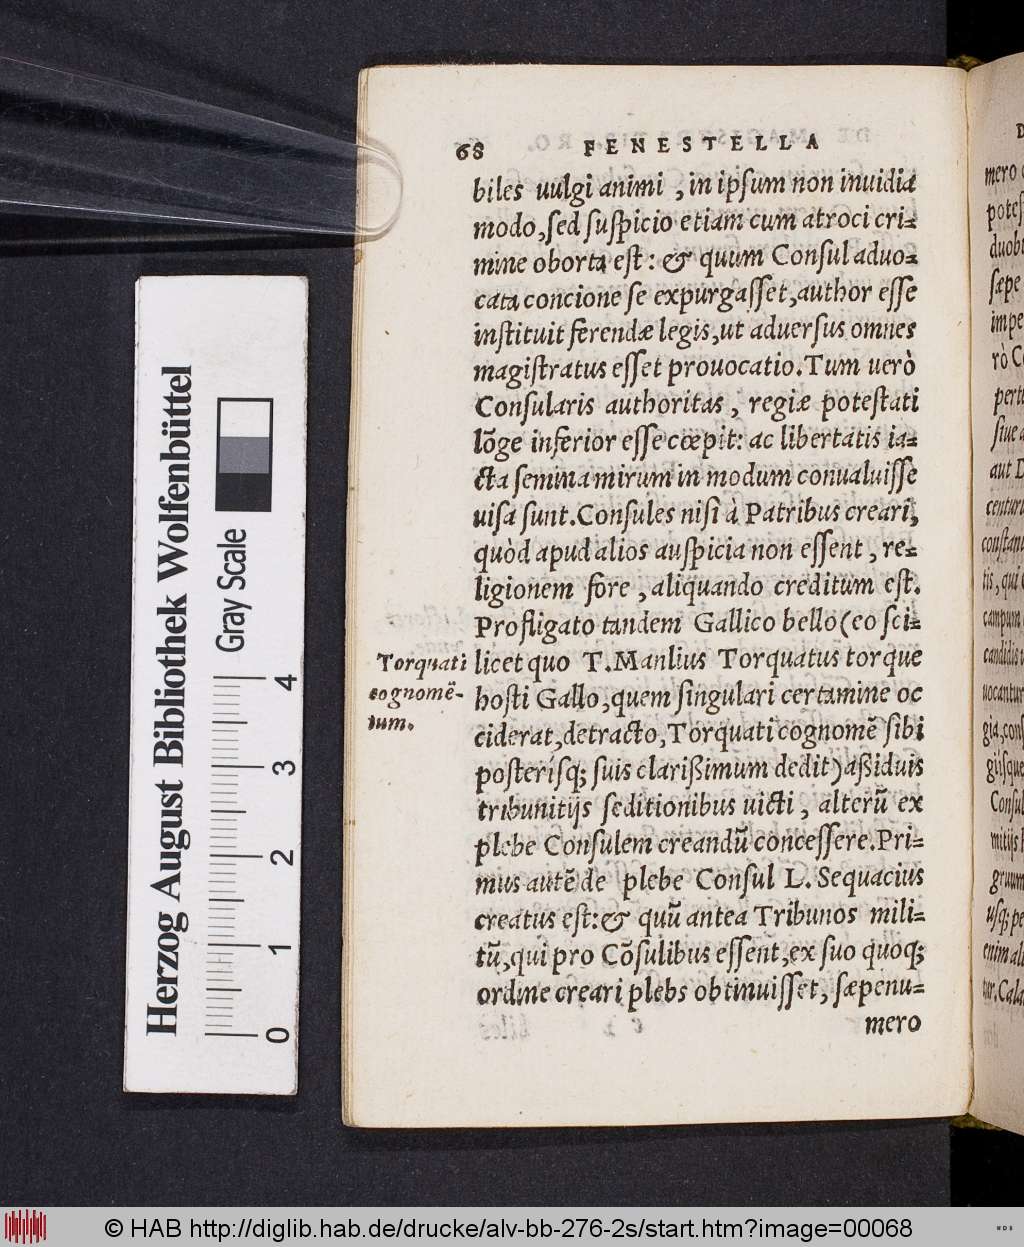 68 FENESTELLA
biles uulgi animi, in ipsum non inuidia
modo, sed suspicio etiam cum atroci cri-
mine oborta est: & quum Consul aduo-
cata concione se expurgasset, author esse
instituit ferendæ legis, ut aduersus omnes
magistratus esset prouocatio. Tum uerò
Consularis authoritas, regiæ potestati
lōge inferior esse cœpit: ac libertatis ia-
cta semina mirum in modum conualuisse
uisa sunt. Consules nisi à Patribus creari,
quòd apud alios auspicia non essent, re-
ligionem fore, aliquando creditum est.
Profligato tandem Gallico bello (eo sci-
licet quo T. Manlius Torquatus torque
hosti Gallo, quem singulari certamine oc
ciderat, detracto, Torquati cognomē sibi
posterísq; suis clarißimum dedit) aßiduis
tribunitijs seditionibus uicti, alterū ex
plebe Consulem creandū concessere. Pri-
mus autē de plebe Consul L. Sequacius
creatus est: & quū antea Tribunos mili-
tū, qui pro Cōsulibus essent, ex suo quoq;
ordine creari plebs obtinuisset, sæpenu-
mero
Torquati
cognomē-
tum.
mero
duob
sæpe
impe
rò C
siue
aut
Consul
Herzog August Bibliothek Wolfenbüttel
Gray Scale
0 1 2 3 4
© HAB http://diglib.hab.de/drucke/alv-bb-276-2s/start.htm?image=00068